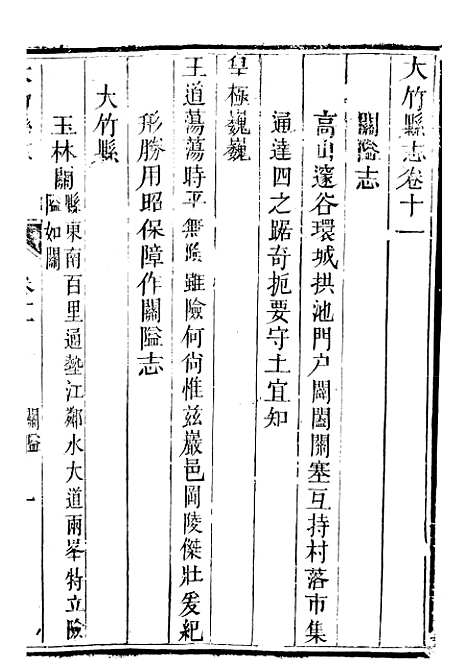 大竹縣志卷十一
關隘志
高山邃谷環城拱池門户闢闔關塞互持村落市集
通達四之踞奇扼要守土宜知
皇極巍巍
王道蕩蕩時平無險雖險何尙惟兹巖邑岡陵傑壯爰紀
形勝用昭保障作關隘志
大竹縣
玉林關縣東南百里通墊江鄰水大道兩峯特立險
隘如關
關隘 一